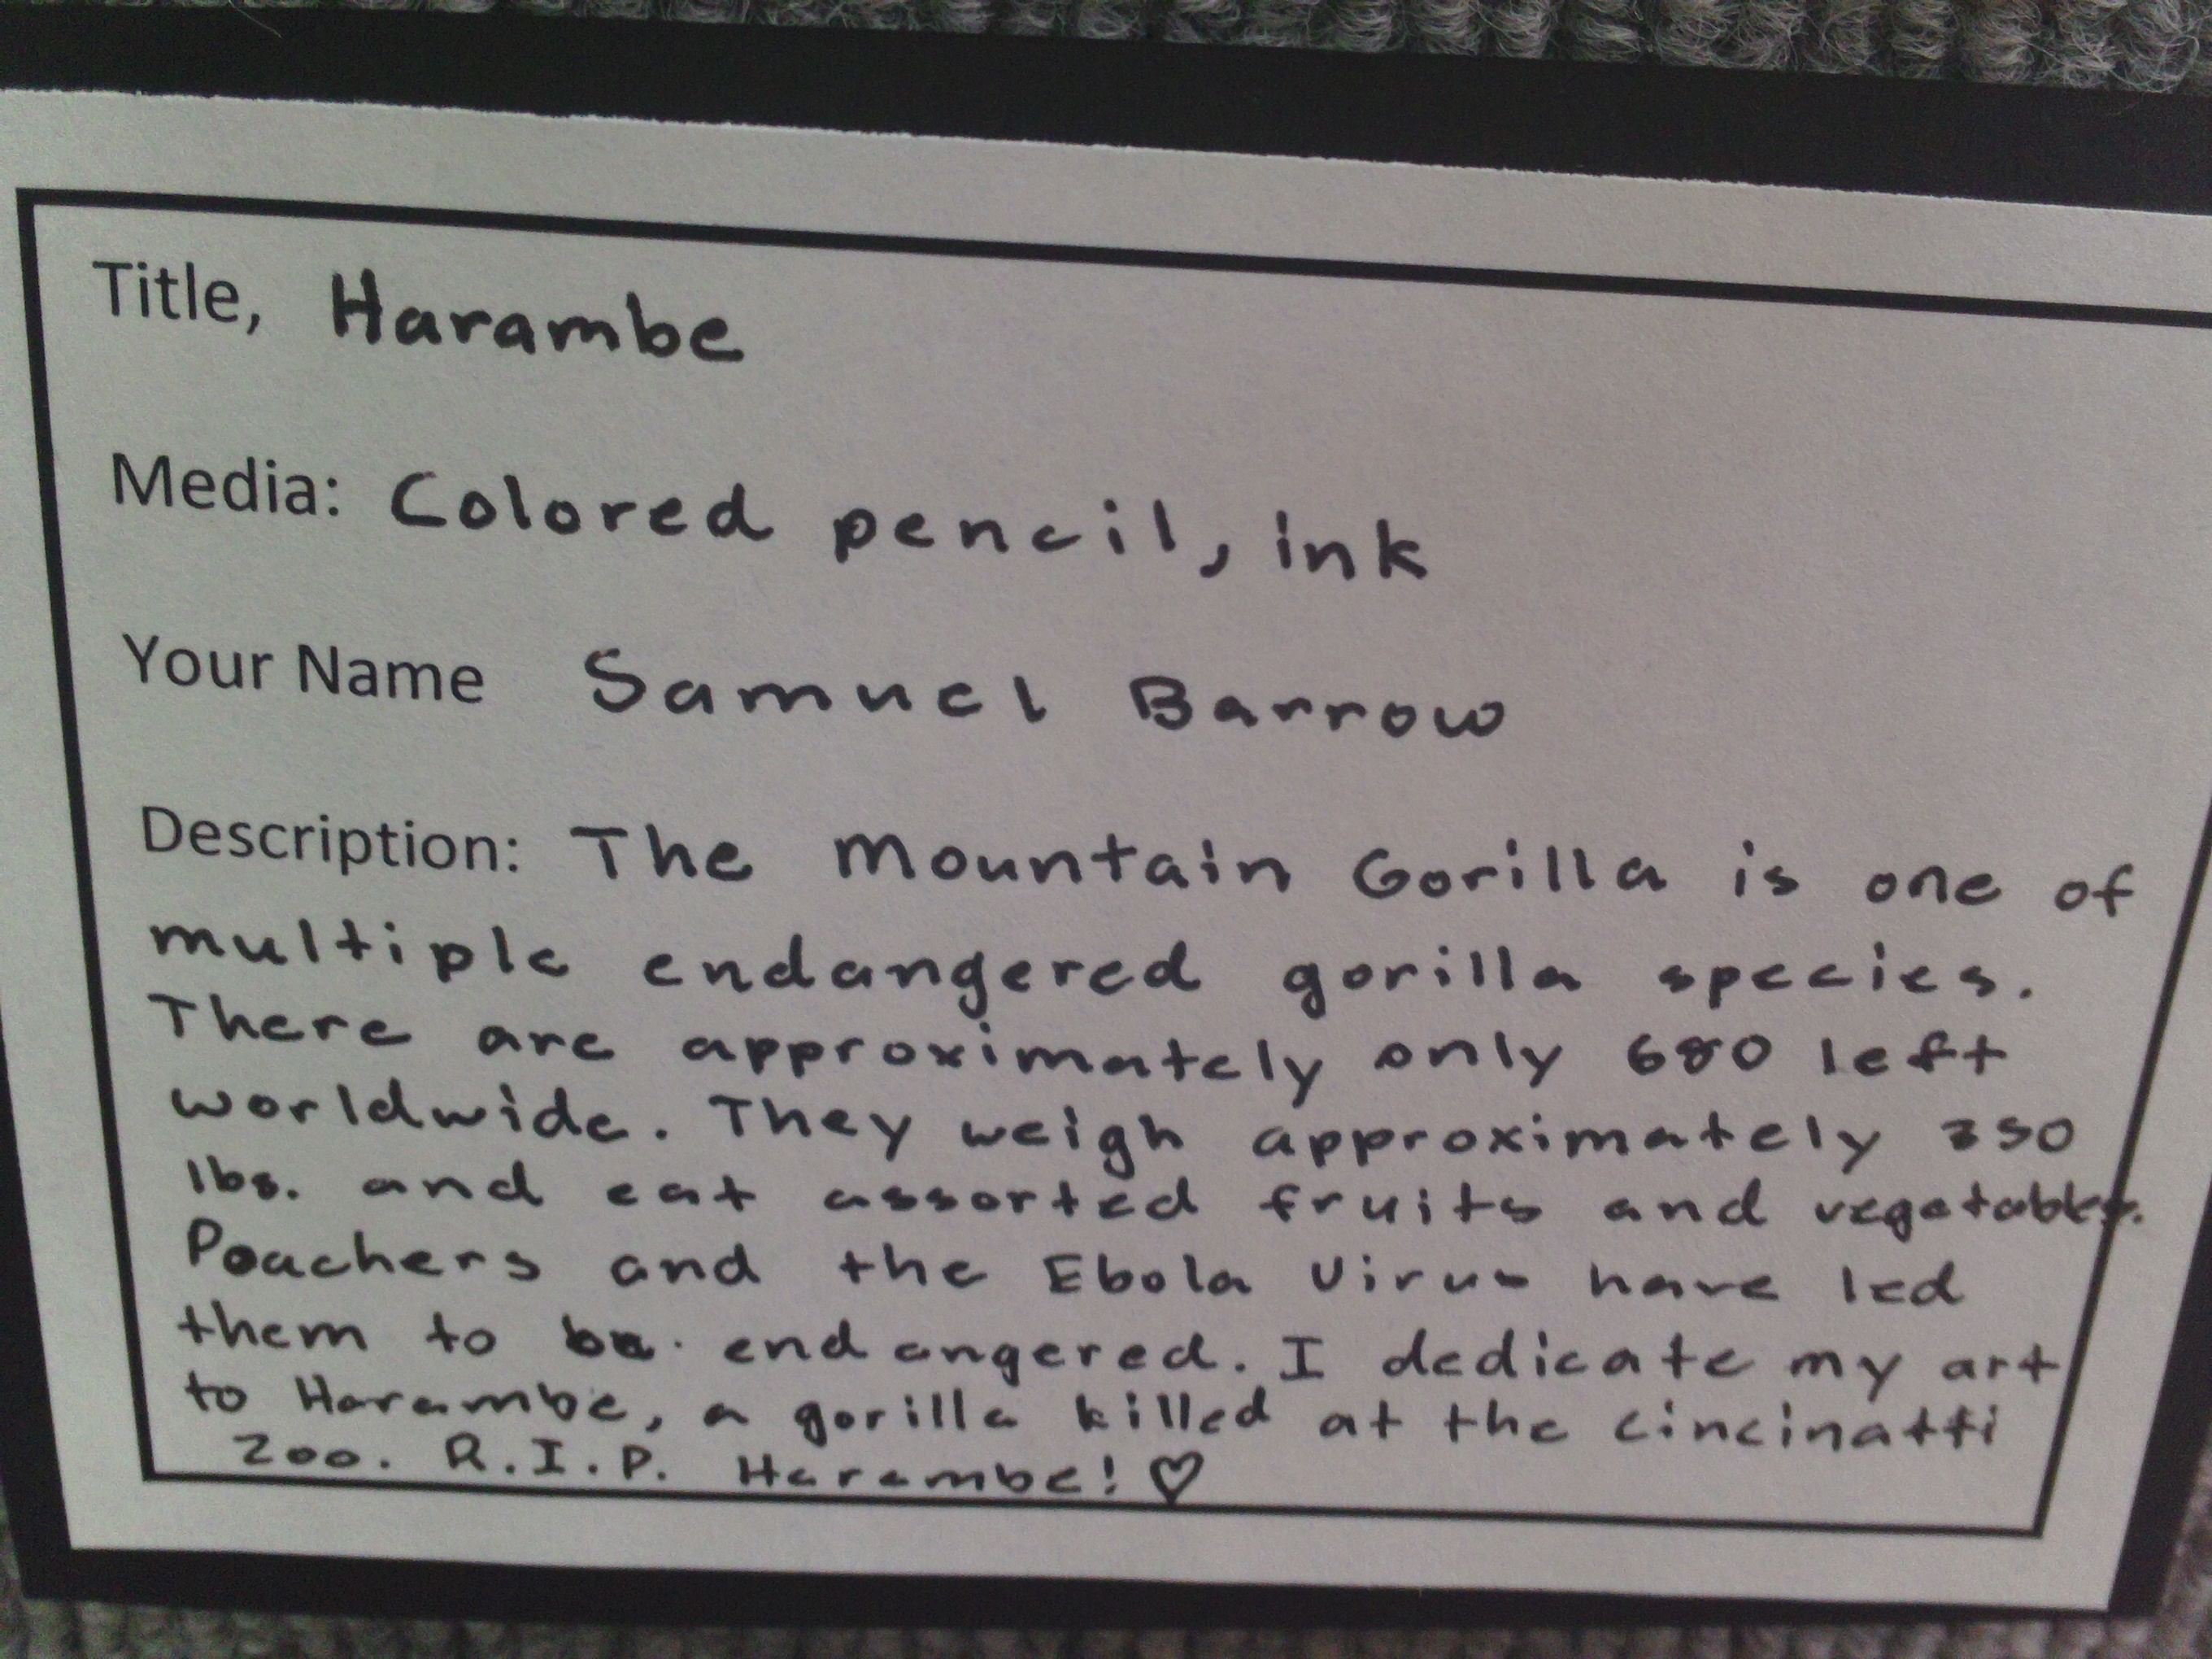 Title, Harambe
Media: Colored pencil, ink
Your Name Samuel Barrow
Description: The Mountain Gorilla is one of
multiple endangered gorilla species.
There are approximately only 680 left
worldwide. They weigh approximately 350
lbs. and eat assorted fruits and vegetables.
Poachers and the Ebola Virus have led
them to be endangered. I dedicate my art
to Harambe, a gorilla killed at the Cincinatti
Zoo. R.I.P. Harambe! ♡